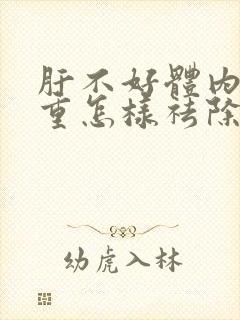 肝不好體內
重怎樣祛除
幼虎入林